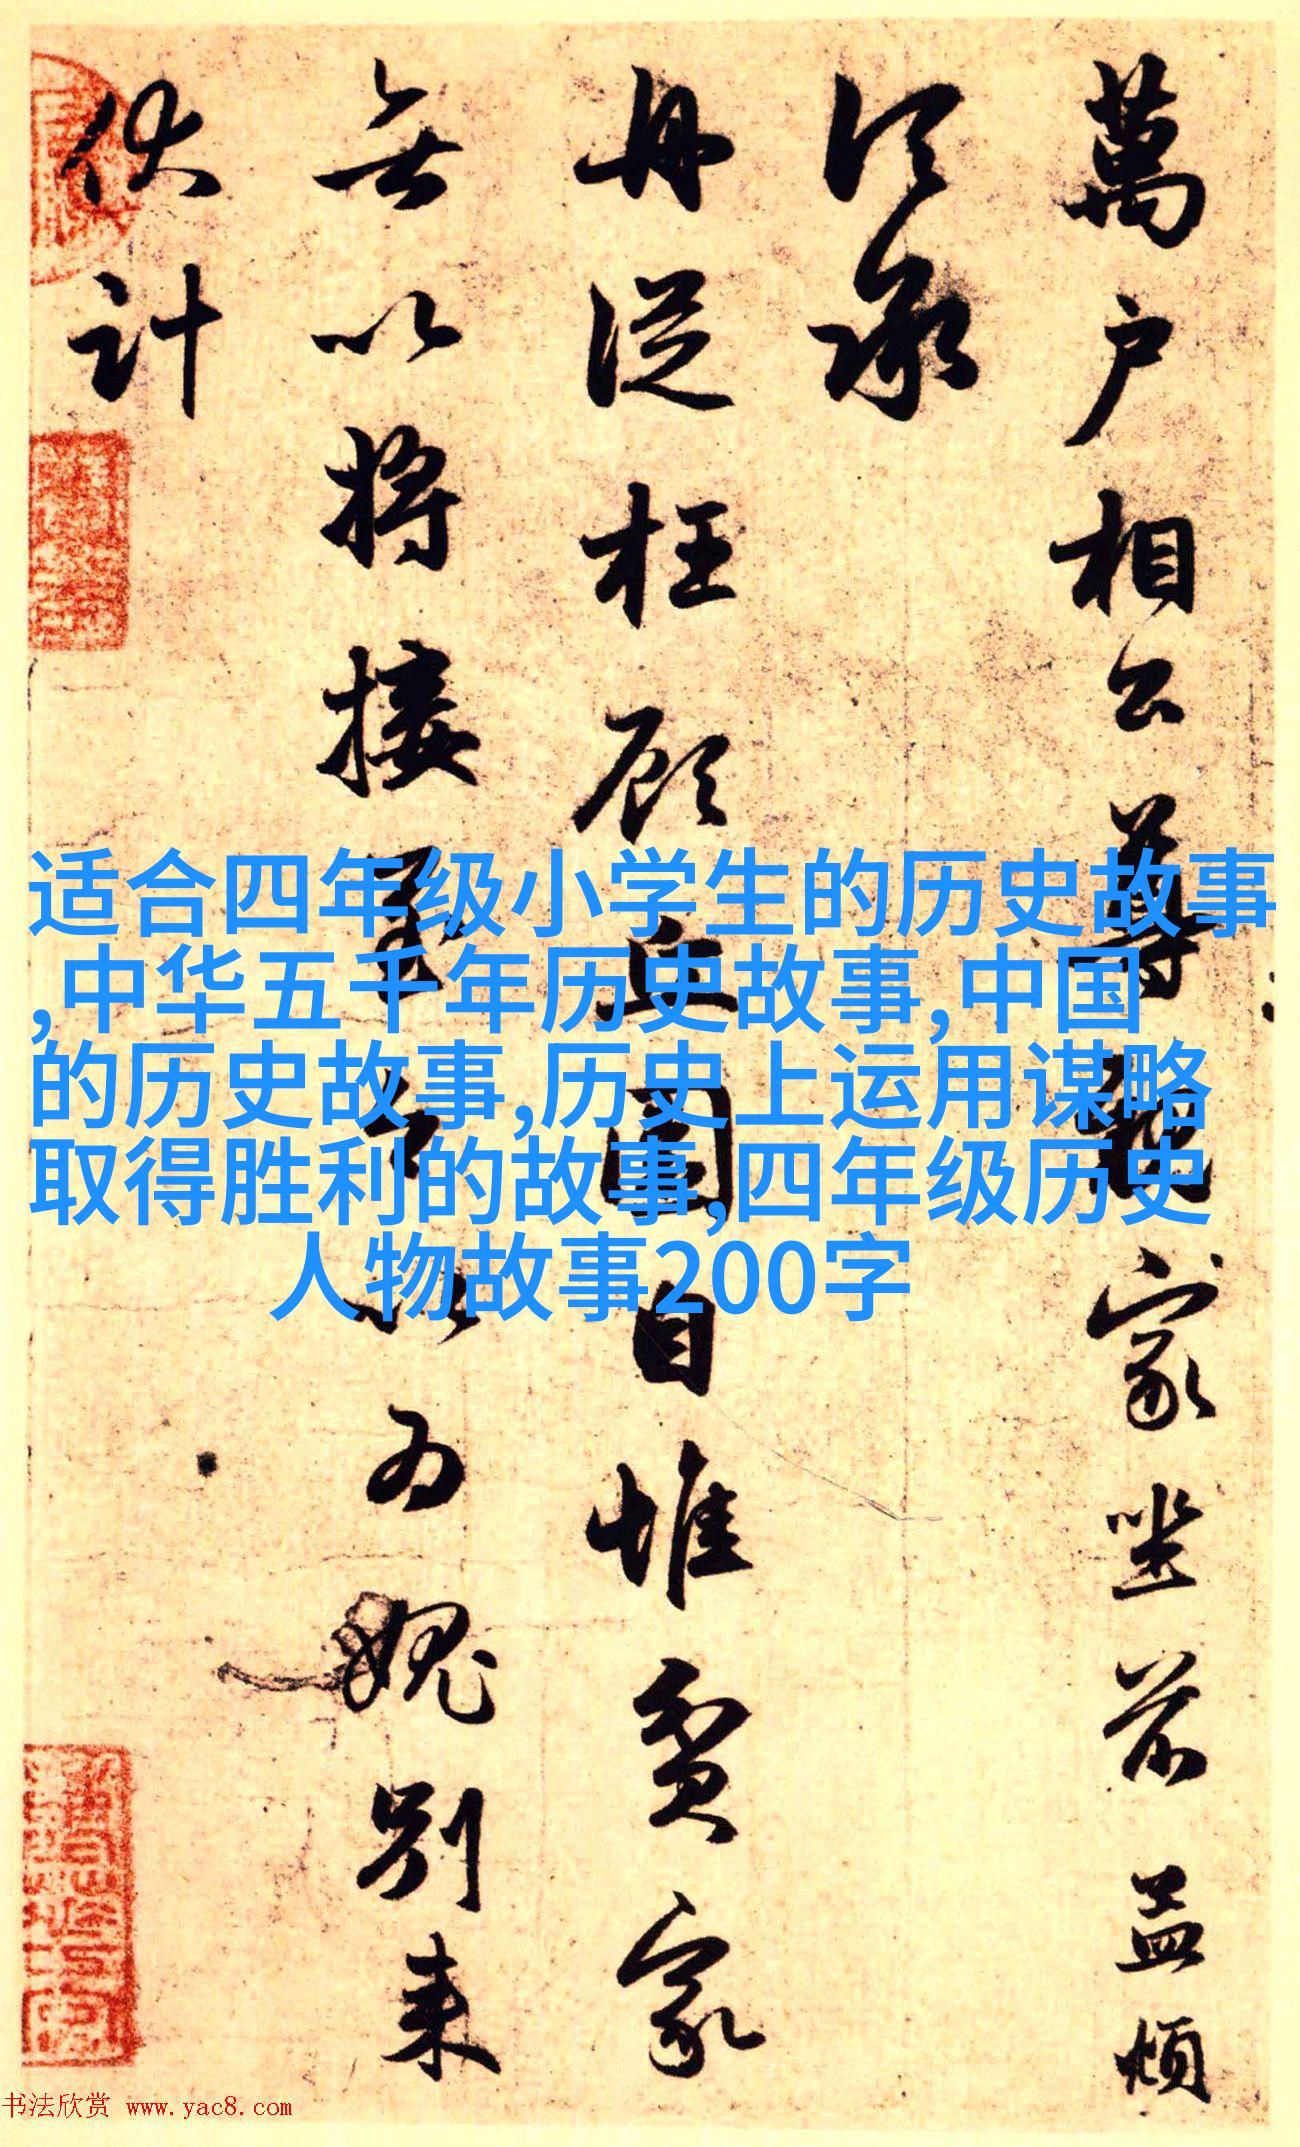 萬戶相公尊親家坐前孟頫
頃承
舟從枉顧丘園自惟貧家
無以將接至今以為愧別来
伏計
适合四年级小学生的历史故事
,中华五千年历史故事,中国
的历史故事,历史上运用谋略
取得胜利的故事,四年级历史
人物故事200字
书法欣赏 www.yac8.com